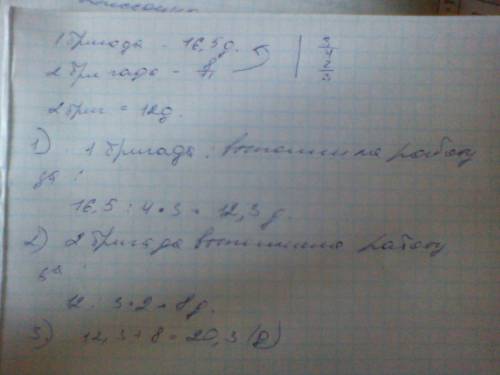 1 бригада - 16,5 д.
2 бригада - 8/11
3/4
2/3
2 бриг = 12 д.
1) 1 бригада выполнила работу
за :
16,5 : 4 · 3 = 12,3 д.
2) 2 бригада выполнила работу
за :
12 : 3 · 2 = 8 д.
3) 12,3 + 8 = 20,3 (д)